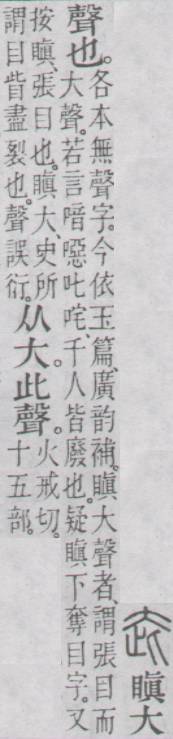 瞋大
聲也。
各本無聲字。今依玉篇、廣韵補。瞋大聲者、謂張目而
大聲。若言喑噁叱咤、千人皆廢也。疑瞋下奪目字。又
按瞋、張目也。瞋大、史所
謂目眥盡裂也。聲誤衍。
从大此聲。
火戒切。
十五部。